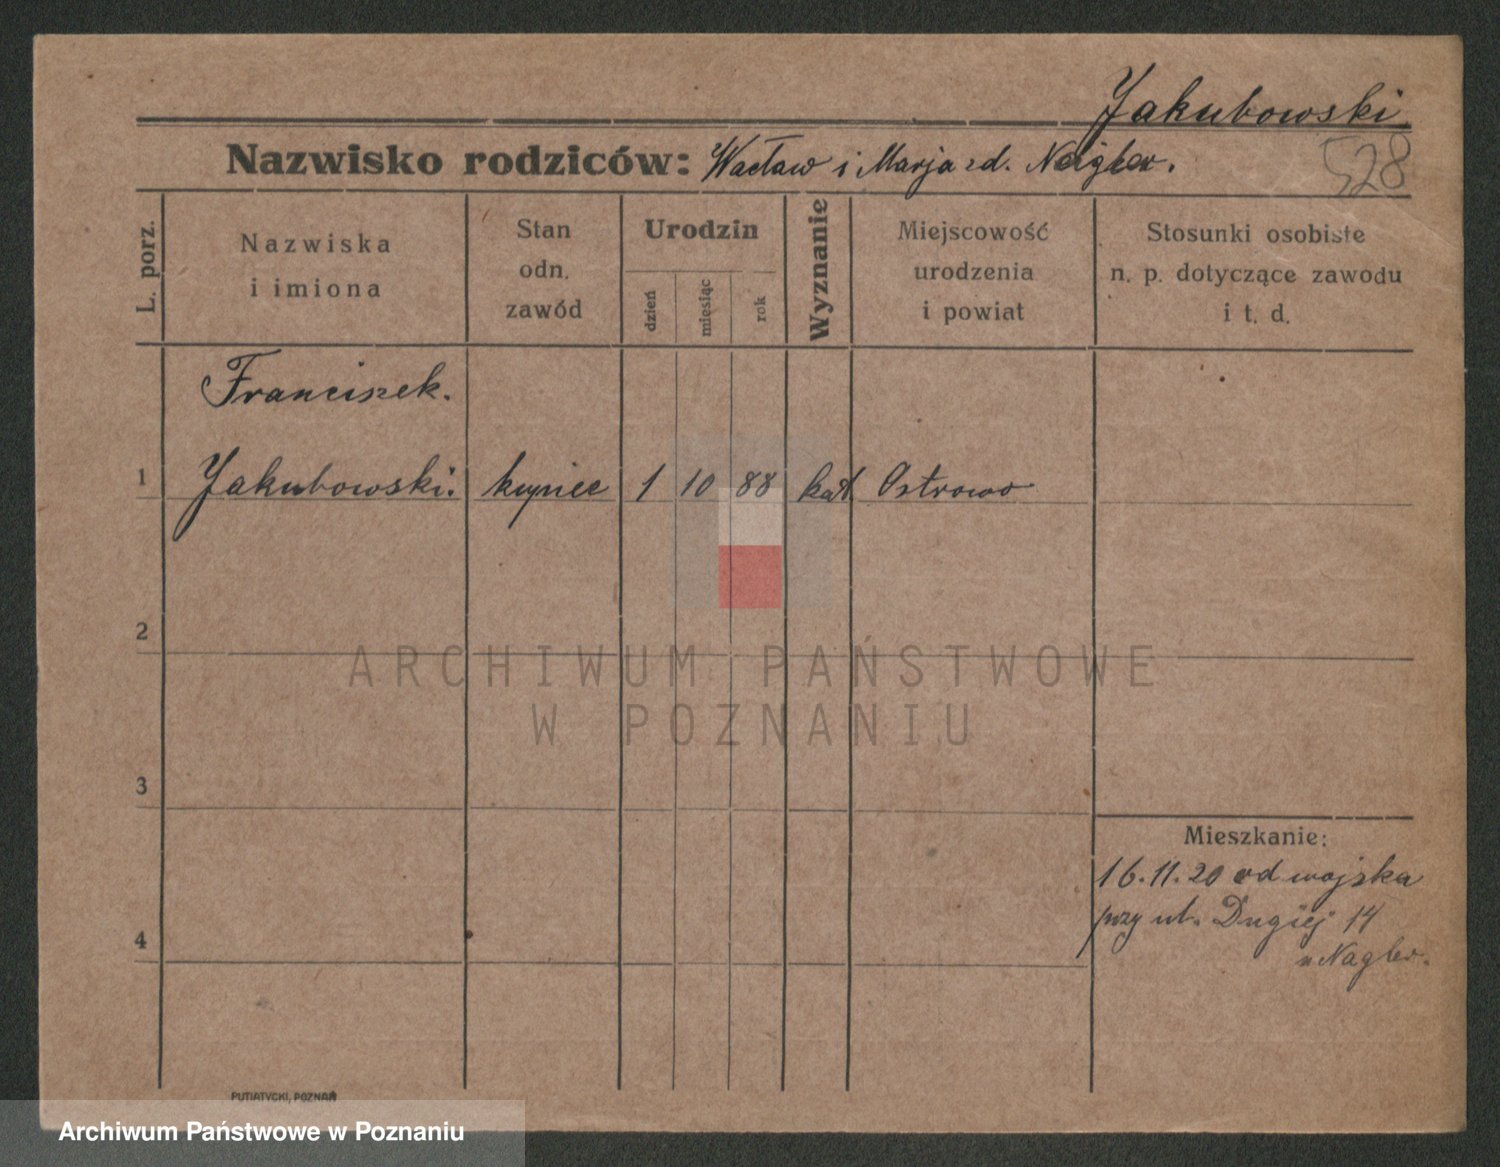 Jakubowski
Nazwisko rodziców: Wacław i Marja zd. Neigler.
528
L. porz.
Nazwiska
i imiona
Stan
odn.
zawód
Urodzin
dzień
miesiąc
rok
Wyznanie
Miejscowość
urodzenia
i powiat
Stosunki osobiste
n. p. dotyczące zawodu
i t. d.
Franciszek.
1 Jakubowski. kupiec 1 10 88 kat Ostrowo
2
3
4
Mieszkanie:
16.11.20 od wojska
przy ul. Długiej 14
u Nagler.
PUTIATYCKI, POZNAŃ
ARCHIWUM PAŃSTWOWE
W POZNANIU
Archiwum Państwowe w Poznaniu